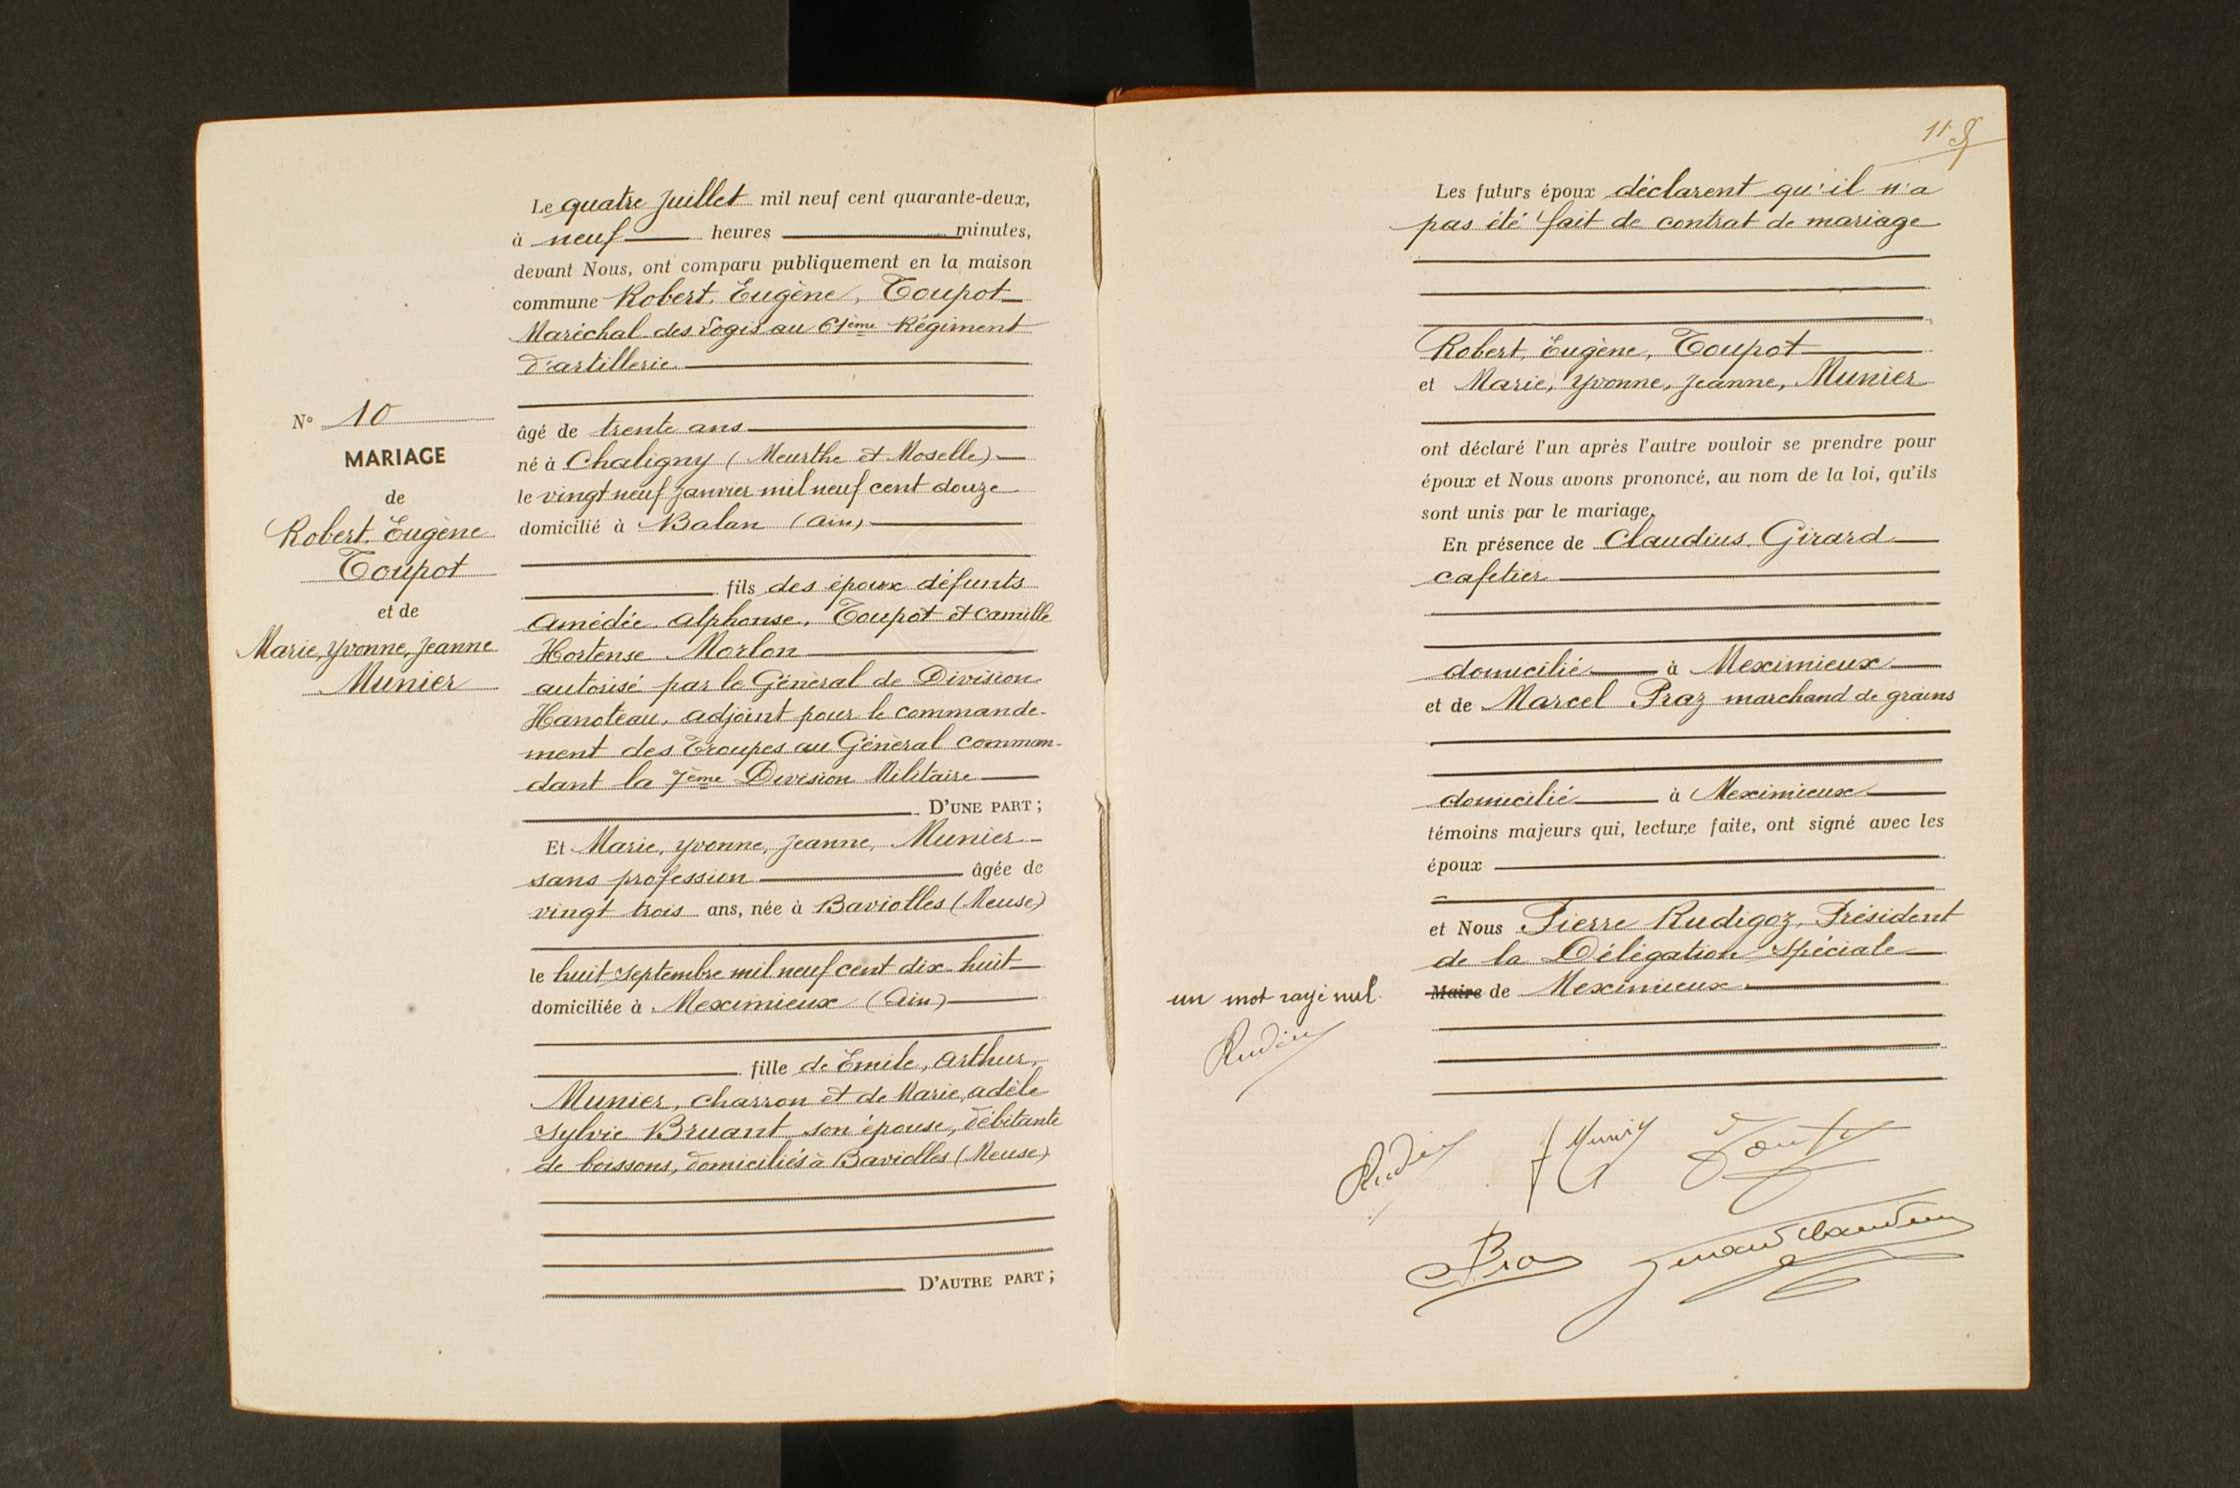 Le quatre Juillet mil neuf cent quarante-deux,
à neuf heures minutes,
devant Nous, ont comparu publiquement en la maison
commune Robert, Eugène, Toupot
Maréchal des Logis au 61ème Régiment
d'artillerie
N° 10
MARIAGE
de
Robert, Eugène
Toupot
et de
Marie, Yvonne, Jeanne
Munier
âgé de trente ans
né à Chaligny (Meurthe et Moselle)
le vingt neuf Janvier mil neuf cent douze
domicilié à Balan (Ain)
fils des époux défunts
Amédée, Alphonse, Toupot et Camille
Hortense Morlon
autorisé par le Général de Division
Hanoteau, adjoint pour le commande-
ment des Troupes au Général comman-
dant la 7ème Division Militaire
D'UNE PART ;
Et Marie, Yvonne, Jeanne, Munier
sans profession âgée de
vingt trois ans, née à Baviolles (Meuse)
le huit Septembre mil neuf cent dix-huit
domiciliée à Meximieux (Ain)
fille de Emile, Arthur,
Munier, charron et de Marie, Adèle
Sylvie Bruant son épouse, débitante
de boissons, domiciliés à Baviolles (Meuse)
D'AUTRE PART ;
11
Les futurs époux déclarent qu'il n'a
pas été fait de contrat de mariage
Robert, Eugène, Toupot
et Marie, Yvonne, Jeanne, Munier
ont déclaré l'un après l'autre vouloir se prendre pour
époux et Nous avons prononcé, au nom de la loi, qu'ils
sont unis par le mariage.
En présence de Claudius, Girard
cafetier
domicilié à Meximieux
et de Marcel Praz marchand de grains
domicilié à Meximieux
témoins majeurs qui, lecture faite, ont signé avec les
époux
et Nous Pierre Rudigoz, Président
de la Délégation Spéciale
Maire de Meximieux
un mot rayé nul.